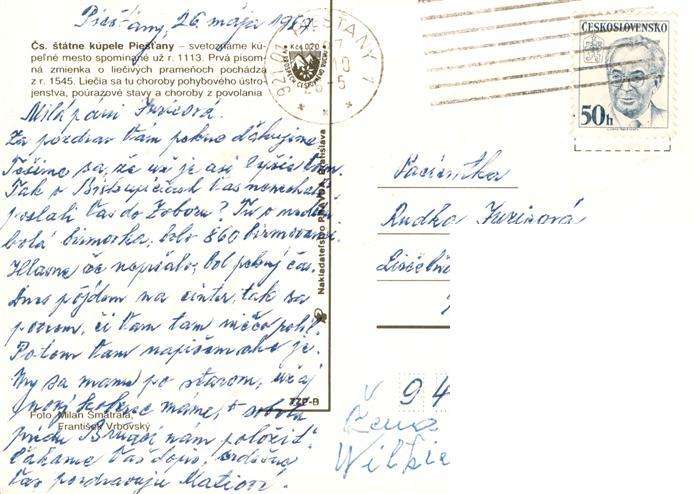 Piešťany, 26 mája 1987
Čs. štátne kúpele Piešťany – svetoznáme kú-
peľné mesto spomínané už r. 1113. Prvá písom-
ná zmienka o liečivých prameňoch pochádza
z r. 1545. Liečia sa tu choroby pohybového ústro-
jenstva, poúrazové stavy a choroby z povolania
Milá pani Jurisová.
Za pozdrav Vám pekne ďakujeme.
Tešíme sa, že už je asi Vyšie Vám.
Tak v Biskupičiach Vás nenechali
poslali Vás do Zoboru? Tu v nedeľu
bola birmovka, bolo 860 birmovancov.
Hlavne že nepršalo, bol pekný čas.
Dnes pôjdem na cintor. tak sa
pozrem, či Vám tam niečo
Potom Vám napíšem ako je.
My sa máme po starom, už aj
nový koberec máme, v sobotu
príde nám položiť.
Čakáme Váš dopis, srdečne
Vás pozdravujú
Foto Milan Šmatrala,
František Vrbovský
77P-B
Nakladateľstvo PRAVDA, Bratislava
PIEŠŤANY 1
921 01
Kčs 0,20
ČESKOSLOVENSKO
50h
Pacientka
Rudka Jurisová
Liečebňa
94